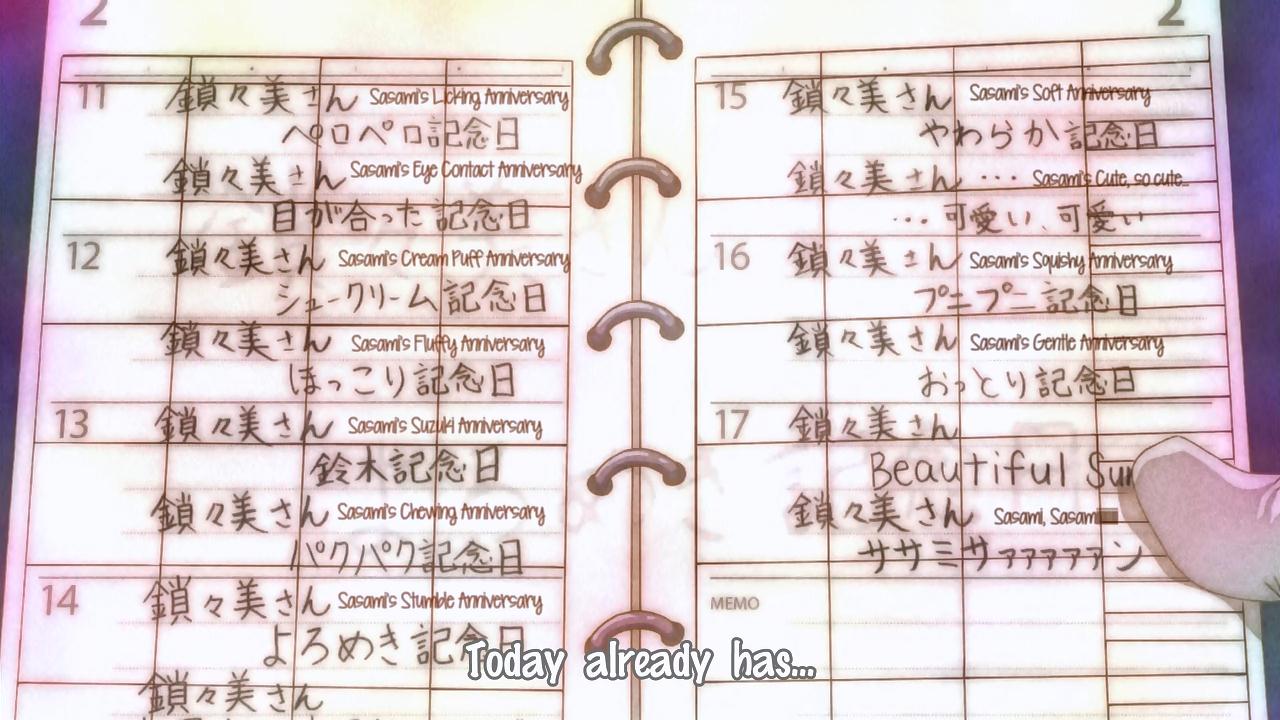 2
11 鎖々美さん Sasami's Licking Anniversary
ペロペロ記念日
鎖々美さん Sasami's Eye Contact Anniversary
目が合った記念日
12 鎖々美さん Sasami's Cream Puff Anniversary
シュークリーム記念日
鎖々美さん Sasami's Fluffy Anniversary
ほっこり記念日
13 鎖々美さん Sasami's Suzuki Anniversary
鈴木記念日
鎖々美さん Sasami's Chewing Anniversary
パクパク記念日
14 鎖々美さん Sasami's Stumble Anniversary
よろめき記念日
鎖々美さん
2
15 鎖々美さん Sasami's Soft Anniversary
やわらか記念日
鎖々美さん… Sasami's Cute, so cute...
…可愛い、可愛い
16 鎖々美さん Sasami's Squishy Anniversary
プニプニ記念日
鎖々美さん Sasami's Gentle Anniversary
おっとり記念日
17 鎖々美さん
Beautiful Sun
鎖々美さん Sasami, Sasami
ササミサァァァァァン
MEMO
Today already has...